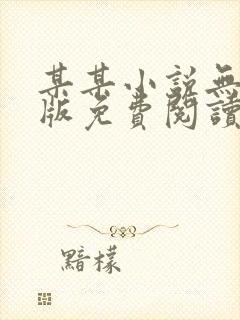 某某小說無
版免費閱讀
黯檬